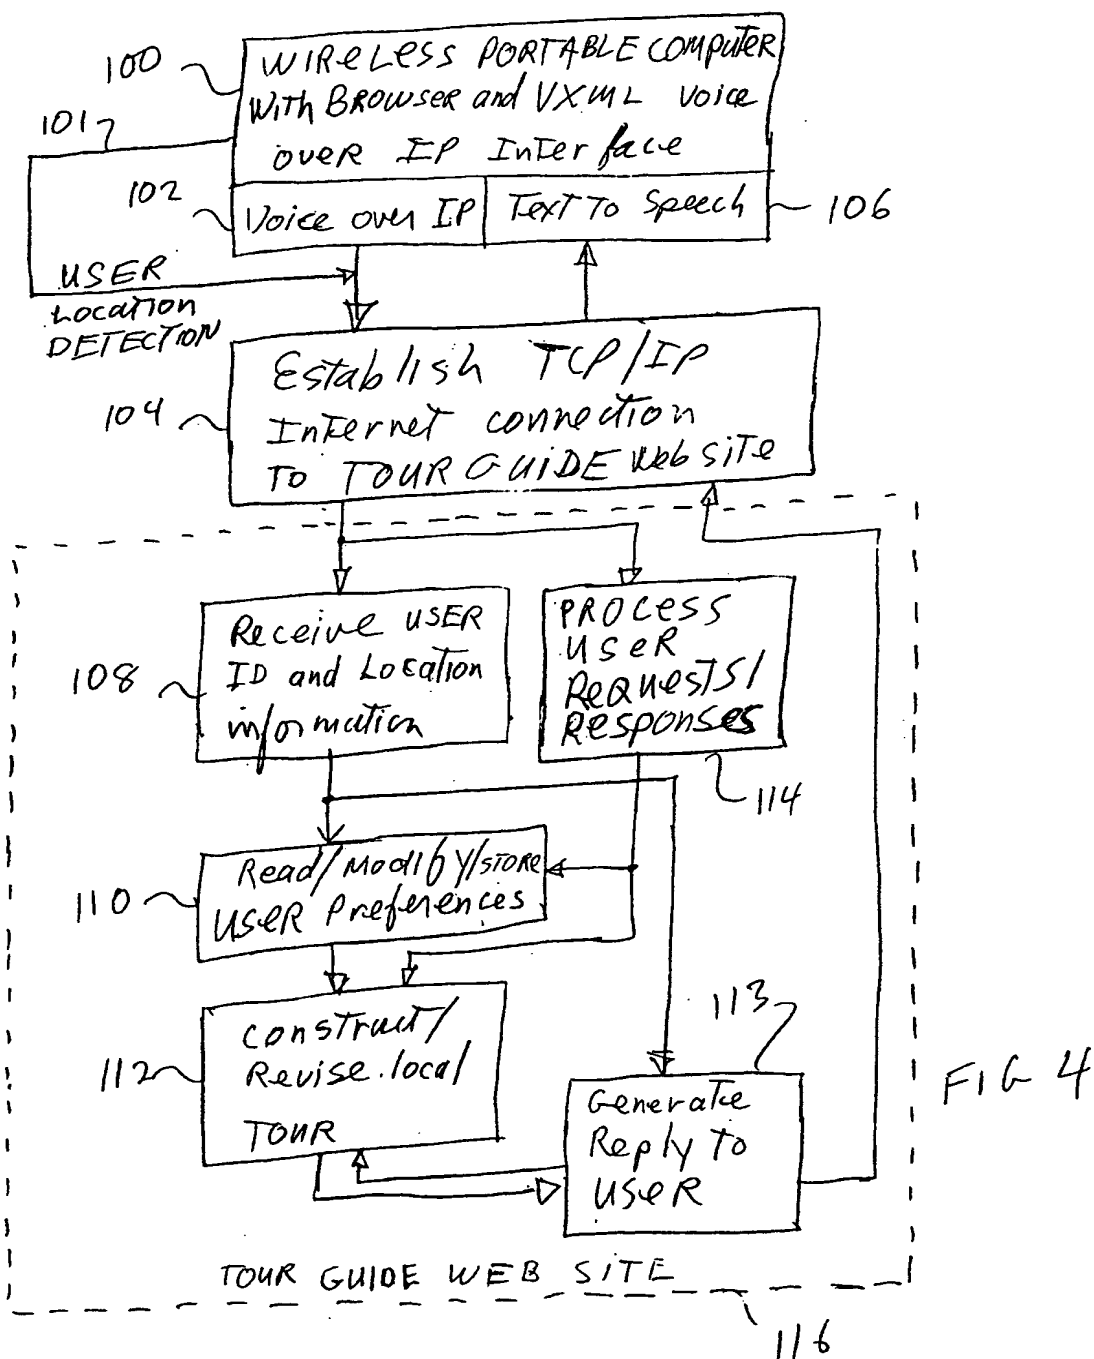 100
WIRELESS PORTABLE COMPUTER
With BROWSER and VXML Voice
over IP Interface
101
102
Voice over IP
Text To Speech
106
USER
Location
DETECTION
104
Establish TCP/IP
Internet connection
To TOUR GUIDE Web site
108
Receive USER
ID and Location
information
PROCESS
USER
Requests/
Responses
114
110
Read/Modify/STORE
USER Preferences
112
Construct/
Revise local
TOUR
113
Generate
Reply to
USER
FIG 4
TOUR GUIDE WEB SITE
116